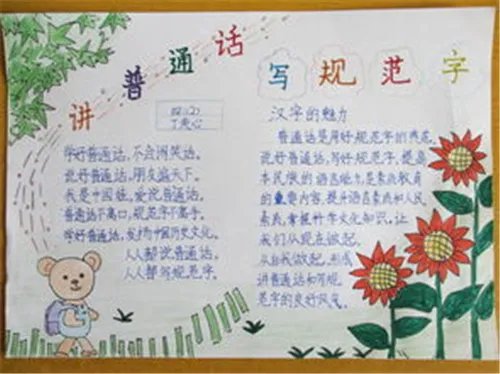 讲普通话
写规范字
汉字的魅力
学好普通话，不会闹笑话。
说好普通话，朋友遍天下。
我是中国娃，爱说普通话。
普通话不离口，规范字不离手。
学好普通话，中国历史文化。
人人都说普通话。
人人都写规范字。
普通话是用好规范字的典范。
说好普通话，写好规范字，提高
本民族的语言是素质教育
的重要内容，提升语言素质和人民
掌握科学文化知识，让
我们从现在做起，
从自我做起，形成
讲普通话和写规
范字的良好风气。